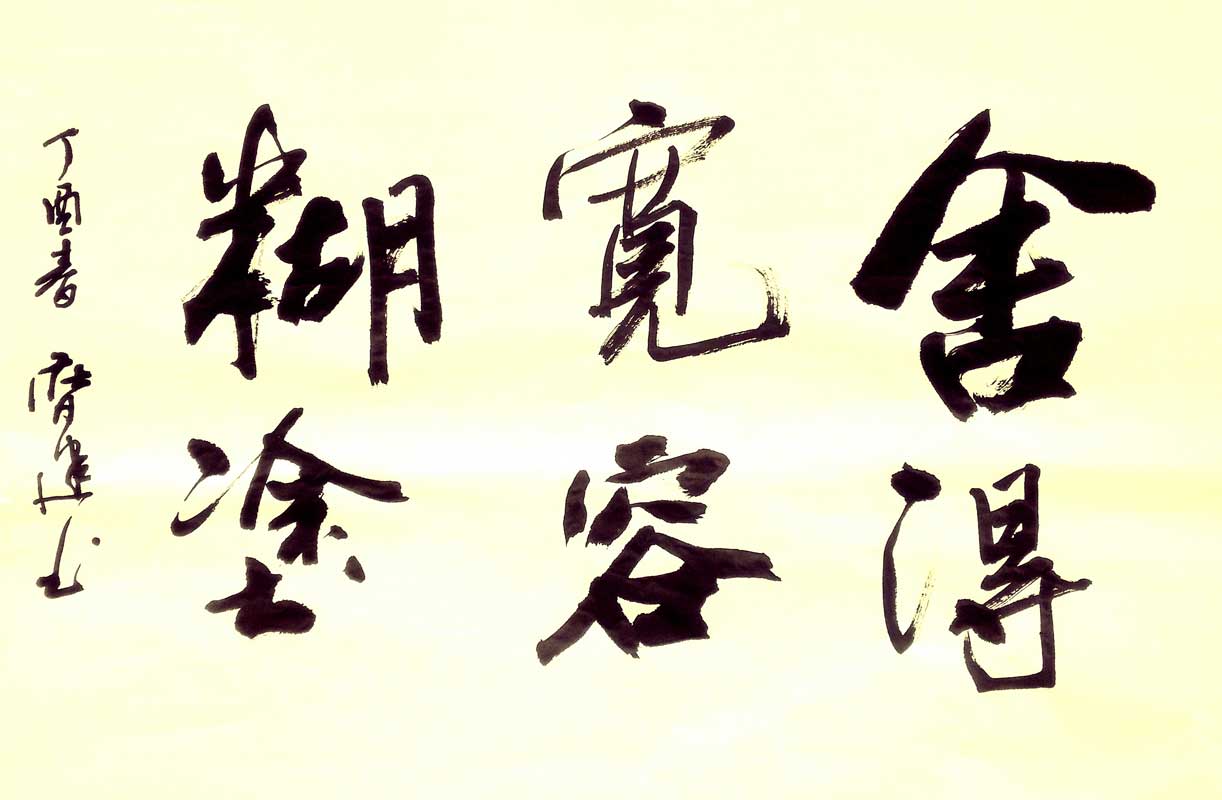 舍得
寬容
糊塗
丁酉春 建书